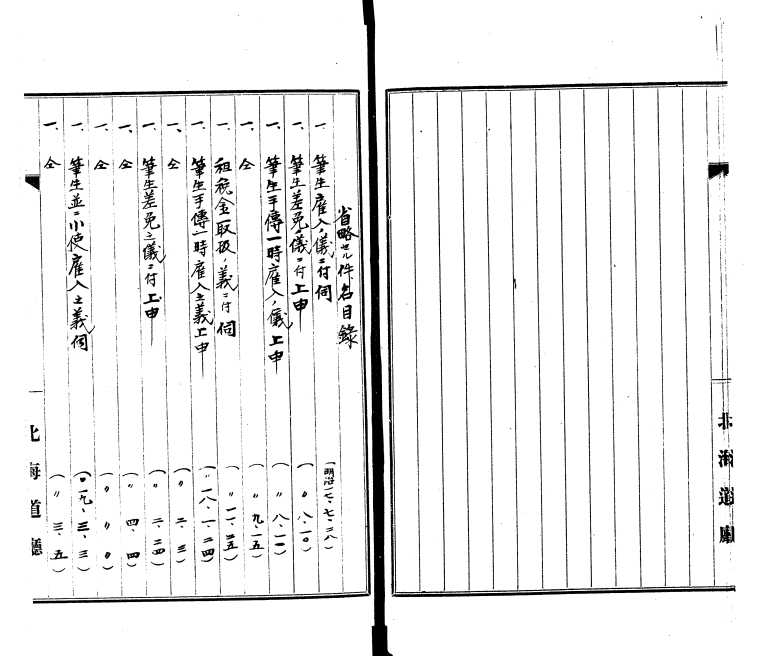 北海道廳
省略セル件名目錄
一、筆生雇入ノ儀ニ付伺 (明治一七、七、二八)
一、筆生差免ノ儀ニ付上申 (〃 八、一〇)
一、筆生手傳一時雇入ノ儀上申 (〃 八、二〇)
一、仝 (〃 九、一五)
一、租税金取扱ノ義ニ付伺 (〃 一一、二五)
一、筆生手傳一時雇入之義上申 (〃一八、一、二四)
一、仝 (〃 二、三)
一、筆生差免之儀ニ付上申 (〃 二、二四)
一、仝 (〃 四、四)
一、仝 (〃 〃 〃)
一、筆生並ニ小使雇入之義伺 (〃一九、三、三)
一、仝 (〃 三、五)
北海道廳